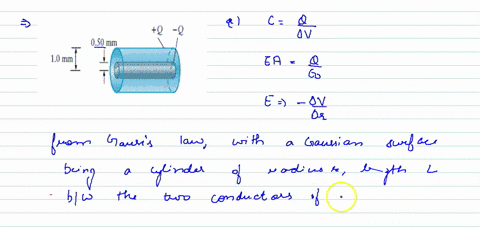 ⇒
+Q -Q
0.50 mm
1.0 mm
a) C = Q/ΔV
EA = Q/ε0
E ⇒ -ΔV/Δr
from Gauss's law, with a Gaussian surface
being a cylinder of radius r, length L
b/w the two conductors of